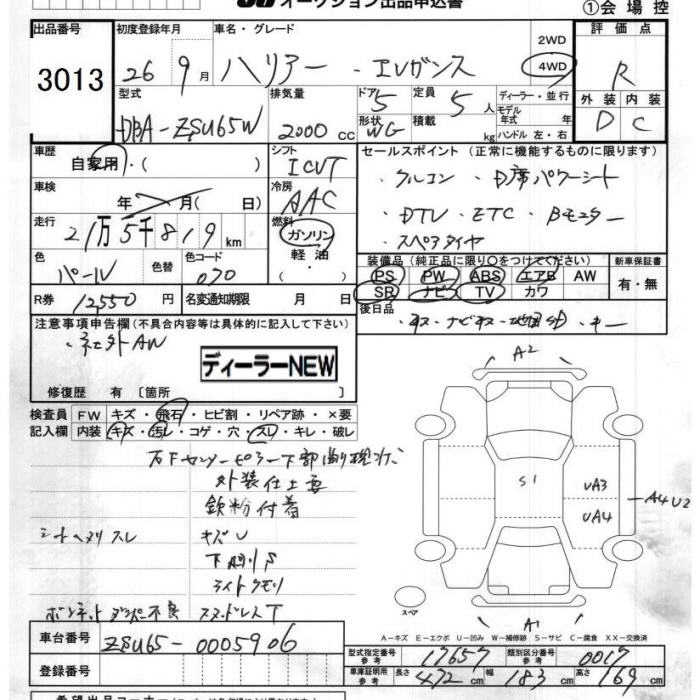 オークション出品申込書
①会場控
出品番号 初度登録年月 車名・グレード 2WD 評価点
3013 26 9月 ハリアー ・エレガンス 4WD R
型式 排気量 ドア 定員 ディーラー・並行 外装 内装
DBA-ZSU65W 2000 CC 5 5人 モデル年式 年 D C
形状 WG 積載 kg ハンドル 左・右
車歴 シフト セールスポイント (正常に機能するものに限ります)
自家用・( ) ICVT ・クルコン ・D席パワーシート
車検 年 月( 日) 冷房 AAC ・DTV ・ETC ・Bモニター
走行 21万5千819km 燃料 ガソリン ・スペアタイヤ
軽油 ・( )
色 パール 色替 色コード 070
装備品(純正品に限り○をつけてください) 新車保証書
PS PW ABS エアB AW 有・無
SR ナビ TV カワ
R券 12,550円 名変通知期限 月 日 後日品
注意事項申告欄(不具合内容等は具体的に記入して下さい)
・社外AW
ディーラーNEW
修復歴 有 [箇所 ]
検査員 FW キズ・飛石・ヒビ割・リペア跡・×要
記入欄 内装 キズ・汚レ・コゲ・穴・スレ・キレ・破レ
外装仕上要
鉄粉付着
シートヘタリ スレ キズU
下廻りS
ライトクモリ
ボンネットダンパー不良 スタッドレスT
A2
S1
UA3
UA4
A4 U2
スペア
A1
A-キズ E-エクボ U-凹み W-補修跡 S-サビ C-腐食 XX-交換済
車台番号 ZSU65-0005906
型式指定番号 参考 17657 類別区分番号 参考 0017
登録番号 車庫証明用 参考 長さ 472cm 幅 183cm 高さ 169cm